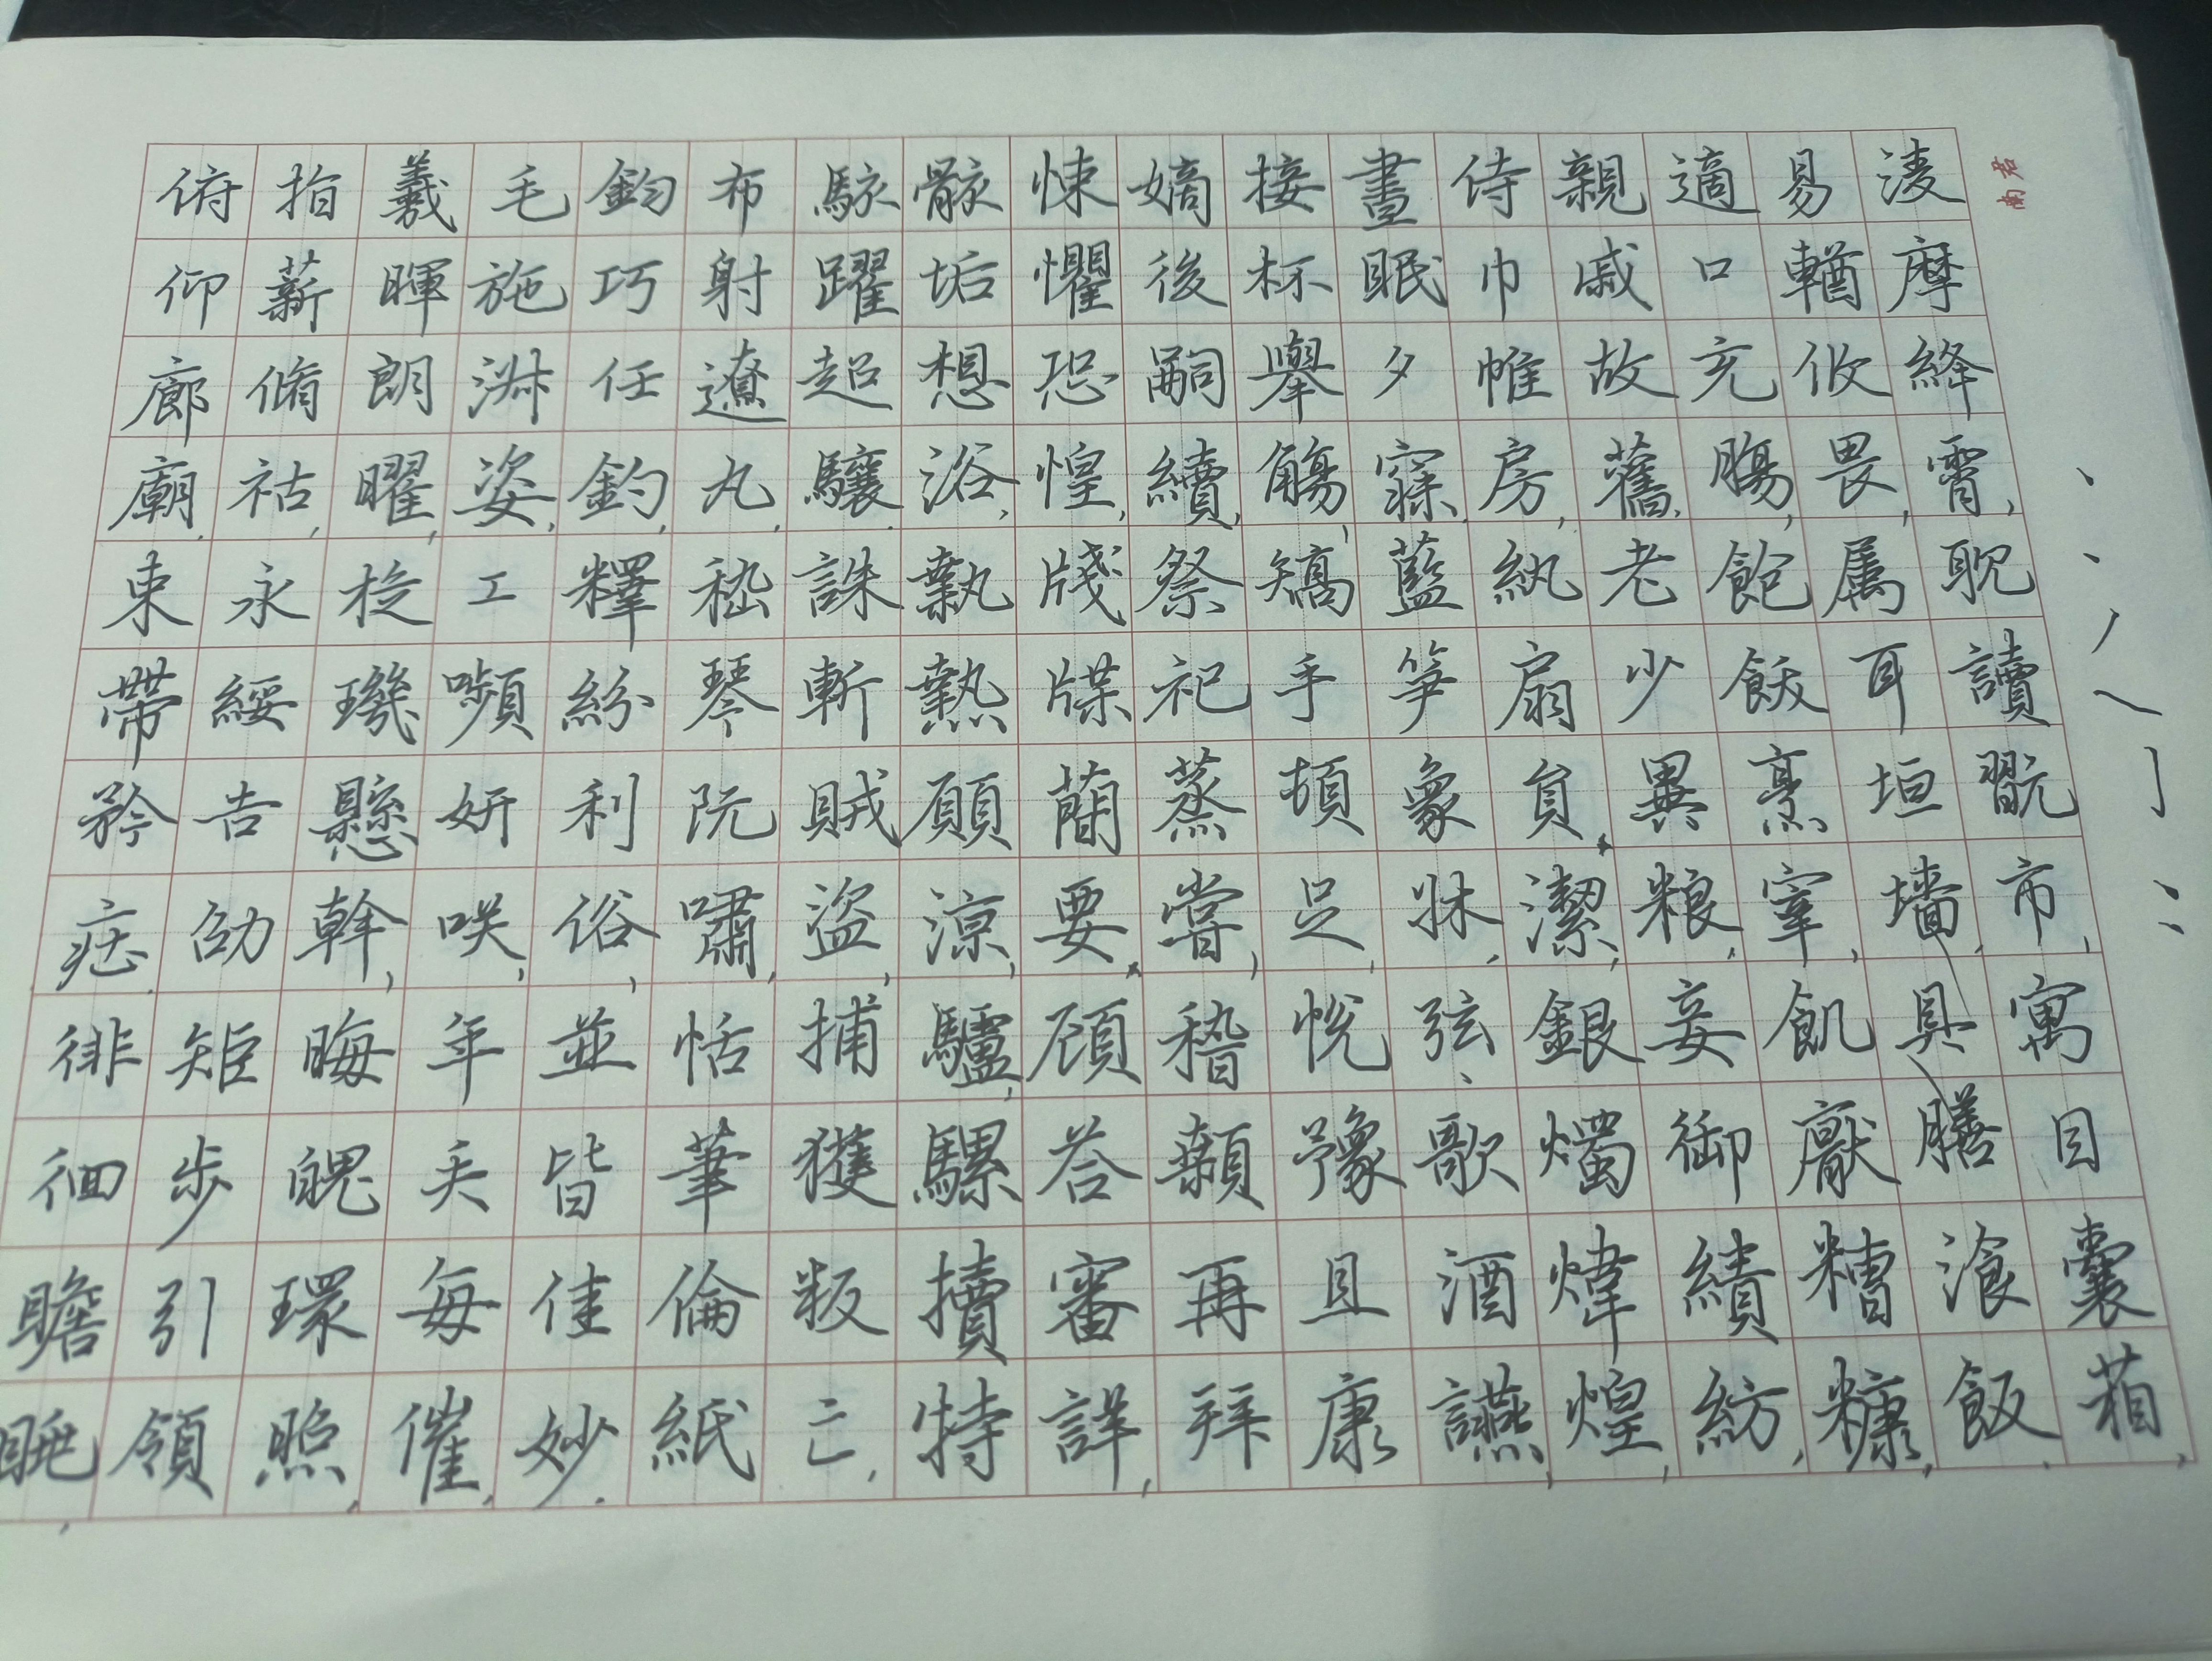 君南
淩摩絳霄,耽讀翫市,寓目囊箱,
易輶攸畏,属耳垣墻,具膳飡飯.
適口充腸,飽飫烹宰,飢厭糟糠,
親戚故舊.老少異粮,妾御績紡,
侍巾帷房,紈扇員潔,銀燭煒煌,
晝眠夕寐.藍笋象牀,弦歌酒讌,
接杯舉觴,矯手頓足,悅豫且康
嫡後嗣續,祭祀蒸嘗,稽顙再拜
悚懼恐惶,牋牒蕳要,顧荅審詳,
骸垢想浴,執熱願涼,驢騾犢特
駭躍超驤.誅斬賊盜,捕獲叛亡,
布射遼丸.嵇琴阮嘯,恬筆倫紙
鈞巧任釣,釋紛利俗,並皆佳妙.
毛施淑姿.工嚬妍咲,年矢每催.
羲暉朗曜,旋璣懸斡,晦魄環照,
指薪脩祜,永綏吉劭矩步引領
俯仰廊廟.束帶矜莊.徘徊瞻眺,